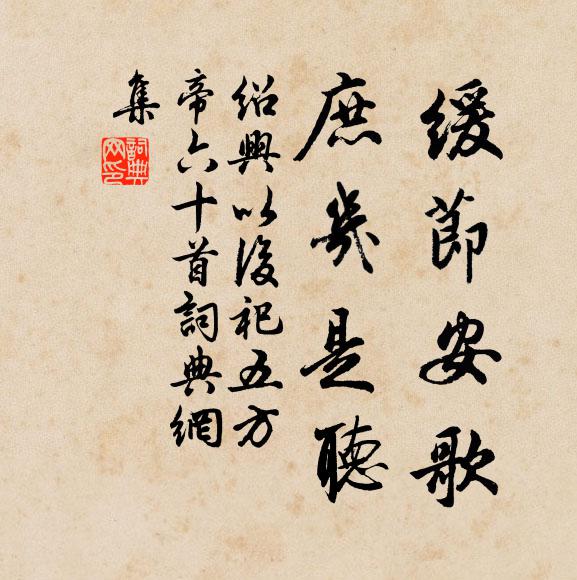 緩節安歌
庶幾是聽
紹興以後祀五方
帝六十首詞典網
集
詞典
网印